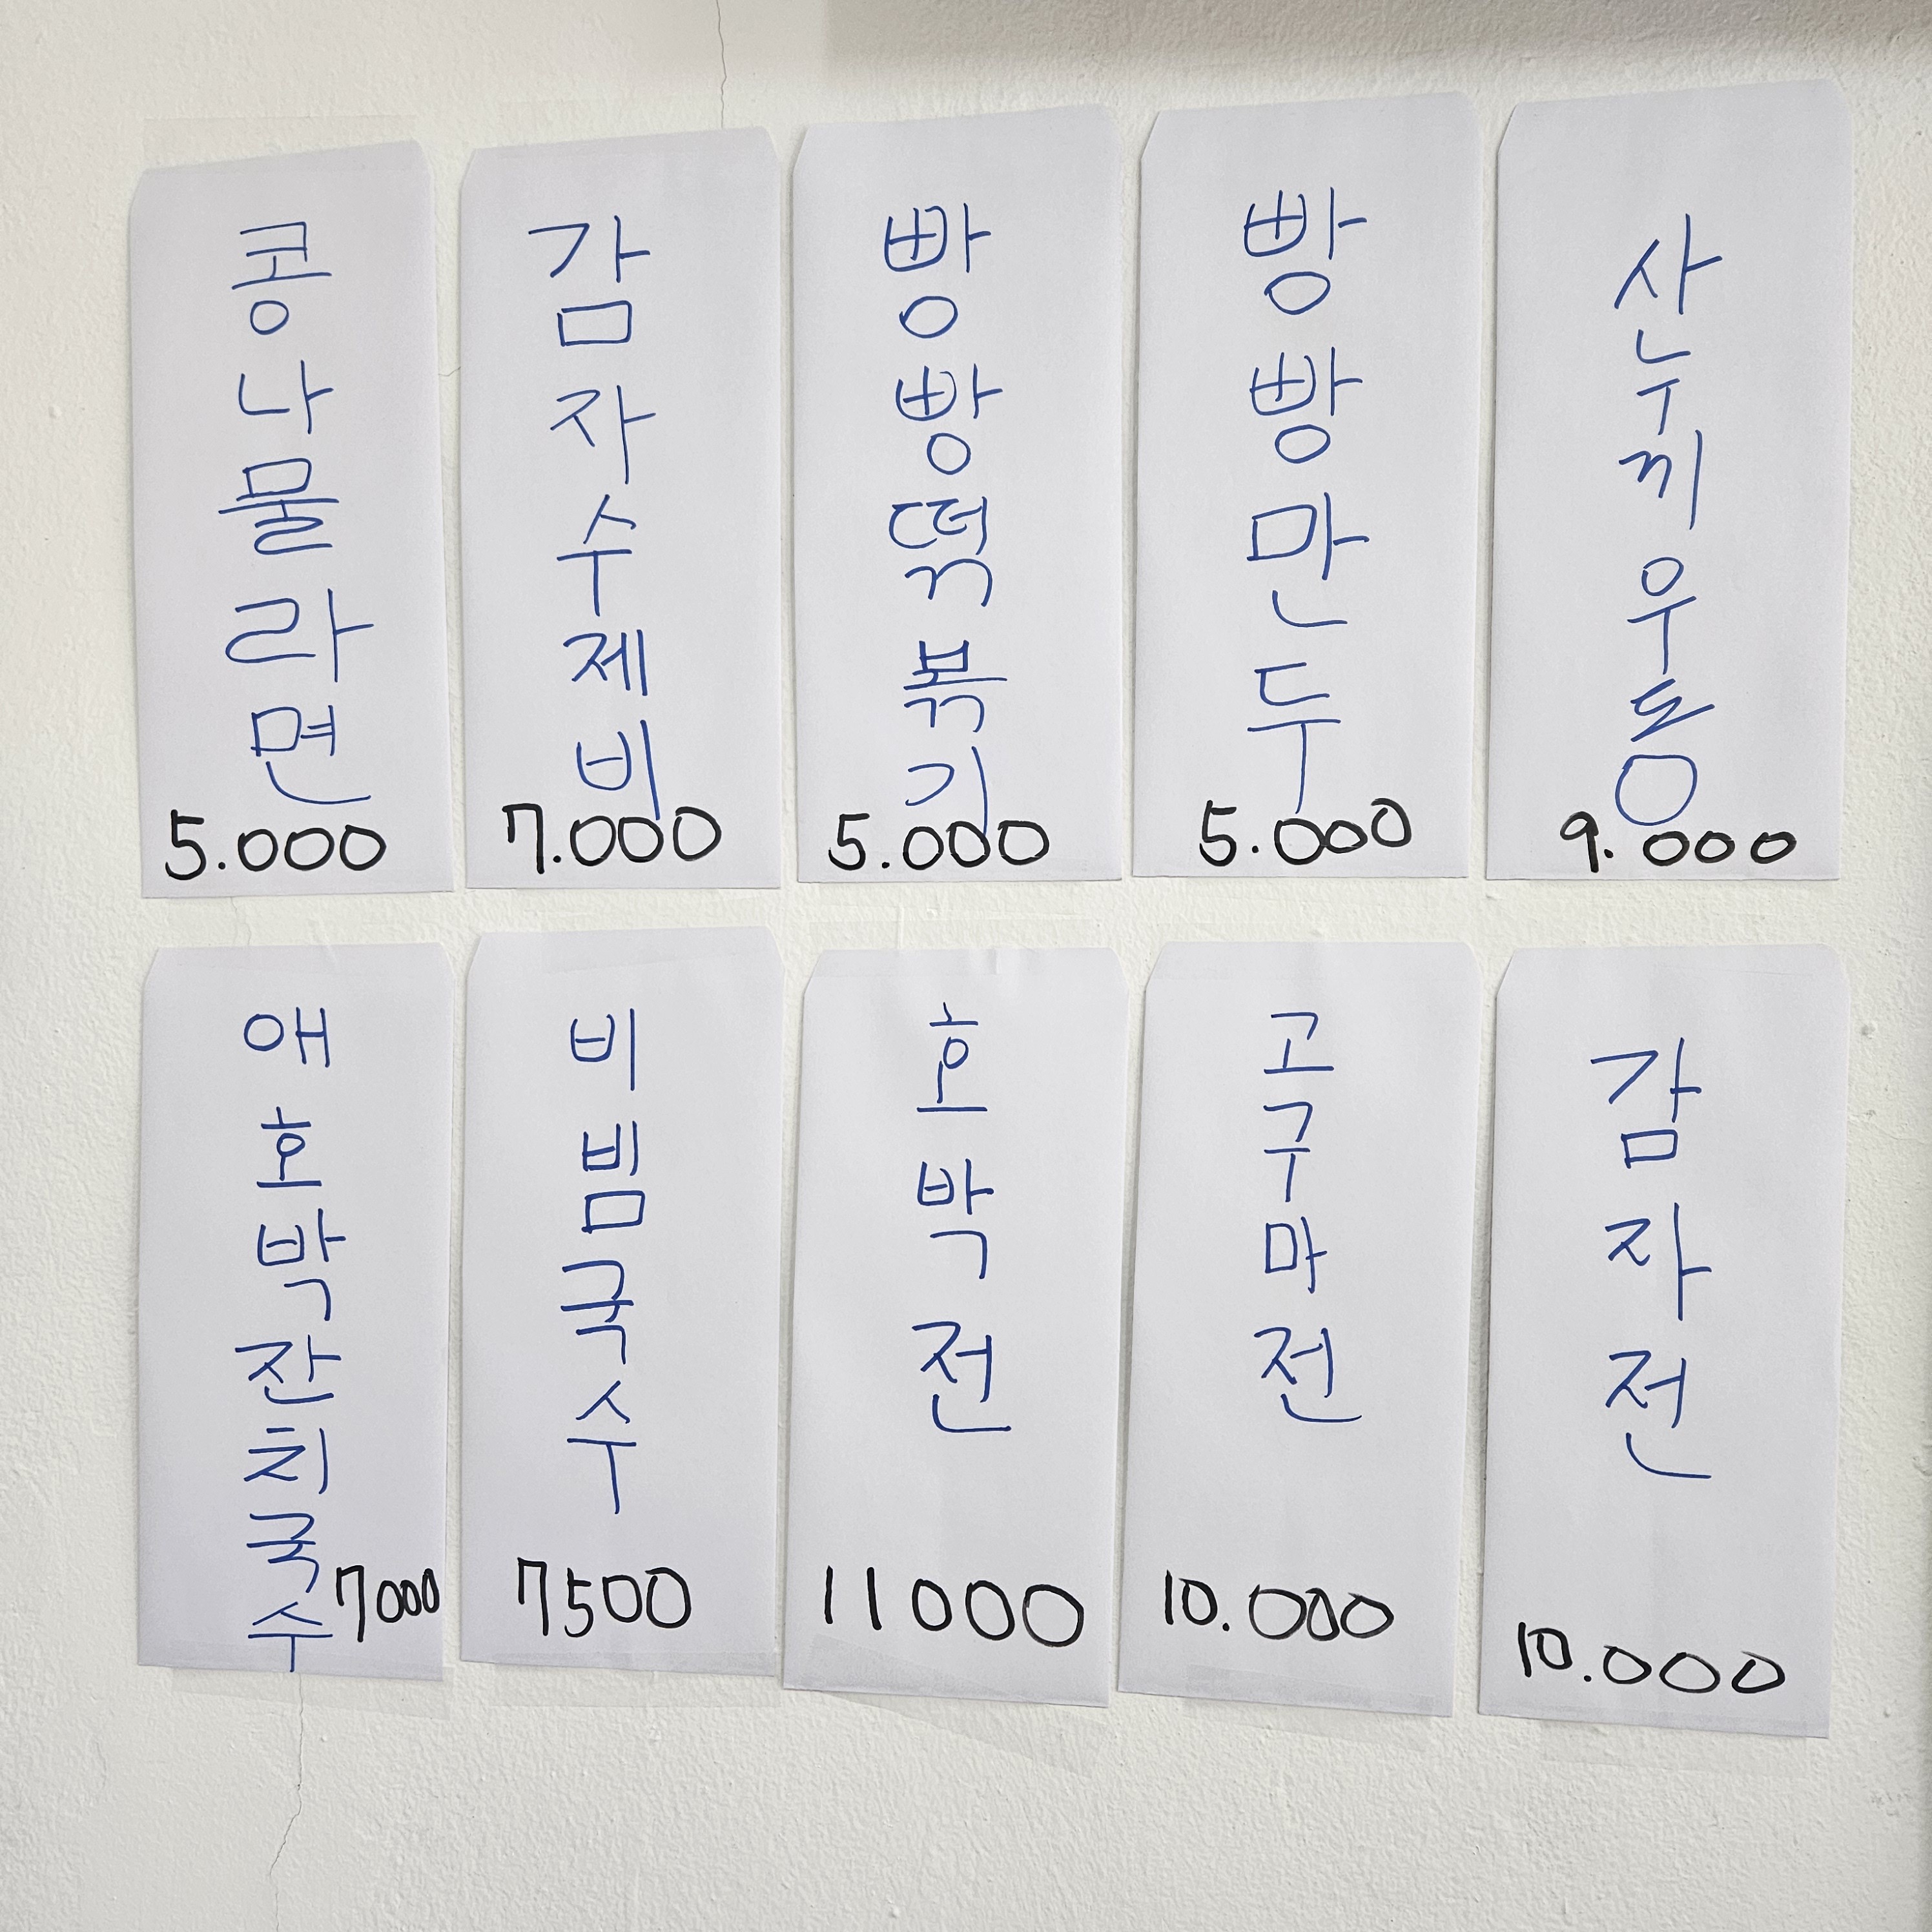 콩나물라면
5.000
감자수제비
7.000
빵빵떡볶기
5.000
빵빵만두
5.000
산누끼우동
9.000
애호박잔치국수
7000
비빔국수
7500
호박전
11000
고구마전
10.000
감자전
10.000